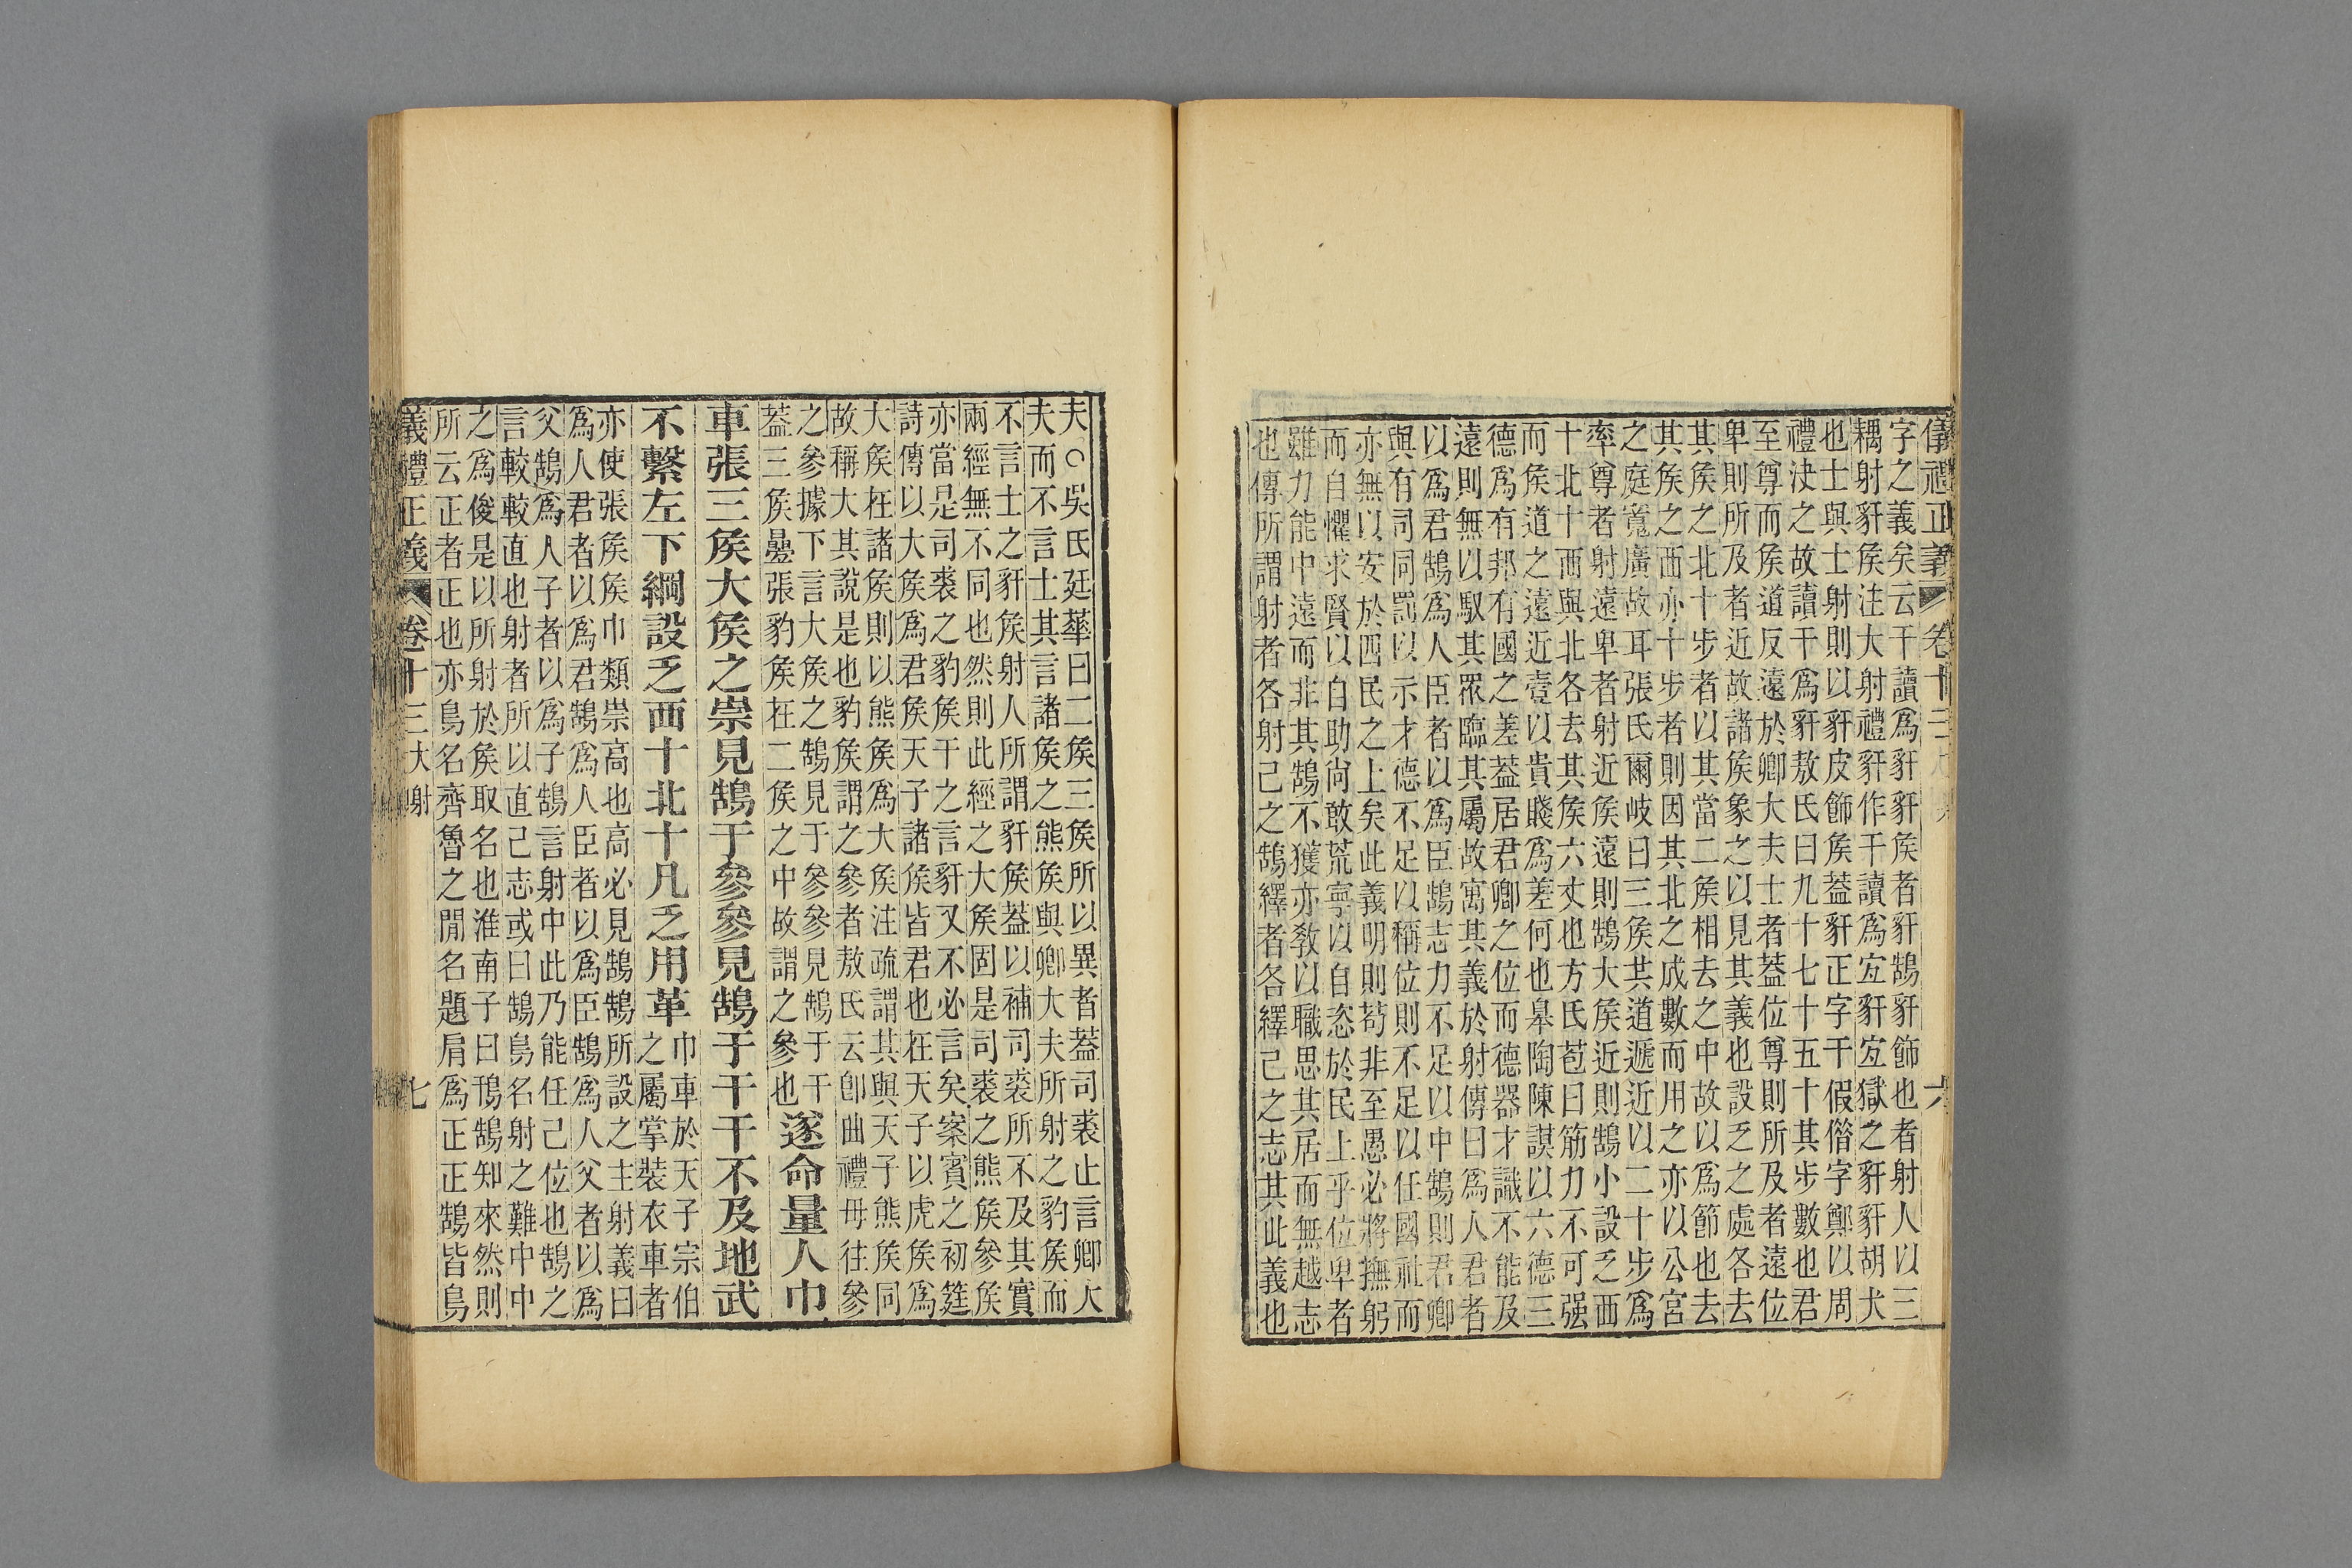 儀禮正義 卷十三 六
字之義矣云干讀爲豻豻矦者豻鵠豻飾也者射人以三
耦射豻矦注大射禮豻作干讀爲宜豻宜獄之豻豻胡犬
也士與士射則以豻皮飾矦葢豻正字干假借字鄭以周
禮決之故讀干爲豻敖氏曰九十七十五十其步數也君
至尊而矦道反遠於卿大夫士者葢位尊則所及者遠位
卑則所及者近故諸矦象之以見其義也設乏之處各去
其矦之北十步者以其當二矦相去之中故以爲節也去
其矦之西亦十步者則因其北之成數而用之亦以公宮
之庭寬廣故耳張氏爾岐曰三矦共道遞近以二十步爲
率尊者射遠卑者射近矦遠則鵠大矦近則鵠小設乏西
十北十西與北各去其矦六丈也方氏苞曰筋力不可强
而矦道之遠近壹以貴賤爲差何也皋陶陳謨以六德三
德爲有邦有國之差葢居君卿之位而德器才識不能及
遠則無以馭其眾臨其屬故寓其義於射傳曰爲人君者
以爲君鵠爲人臣者以爲臣鵠志力不足以中鵠則君卿
與有司同罰以示才德不足以稱位則不足以任國社而
亦無以安於四民之上矣此義明則苟非至愚必將撫躬
而自懼求賢以自助尚敢荒寧以自恣於民上乎位卑者
雖力能中遠而非其鵠不獲亦敎以職思其居而無越志
也傳所謂射者各射己之鵠繹者各繹己之志其此義也
夫○吳氏廷華曰二矦三矦所以異者葢司裘止言卿大
夫而不言士其言諸矦之熊矦與卿大夫所射之豹矦而
不言士之豻矦射人所謂豻矦葢以補司裘所不及其實
兩經無不同也然則此經之大矦固是司裘之熊矦參矦
亦當是司裘之豹矦干之言豻又不必言矣案賓之初筵
詩傳以大矦爲君矦天子諸矦皆君也在天子以虎矦爲
大矦在諸矦則以熊矦爲大矦注疏謂其與天子熊矦同
故稱大其說是也豹矦謂之參者敖氏云卽曲禮毋往參
之參據下言大矦之鵠見于參參見鵠于干
葢三矦曡張豹矦在二矦之中故謂之參也
遂命量人巾
車張三矦大矦之崇見鵠于參參見鵠于干干不及地武
不繫左下綱設乏西十北十凡乏用革
巾車於天子宗伯
之屬掌裝衣車者
亦使張矦矦巾類崇高也高必見鵠鵠所設之主射義曰
爲人君者以爲君鵠爲人臣者以爲臣鵠爲人父者以爲
父鵠爲人子者以爲子鵠言射中此乃能任己位也鵠之
言較較直也射者所以直己志或曰鵠鳥名射之難中中
之爲俊是以所射於矦取名也淮南子曰鳱鵠知來然則
所云正者正也亦鳥名齊魯之閒名題肩爲正正鵠皆鳥
義禮正義 卷十三 大射 七